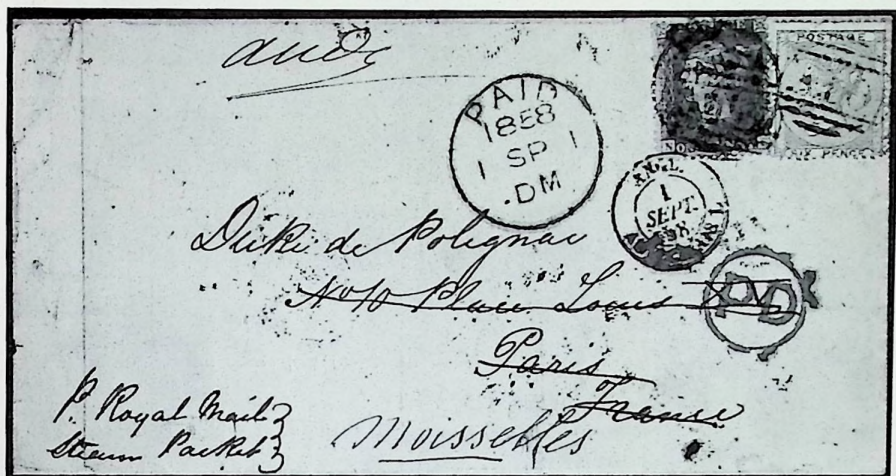 POSTAGE
SIX PENCE
PAID
1858
1 SP 1
.DM
ANGL.
1
SEPT.
58
Duke de Polignac
No 10 Place Louis XV
PD
Paris
France
P. Royal Mail
Steam Packet
Moisselles